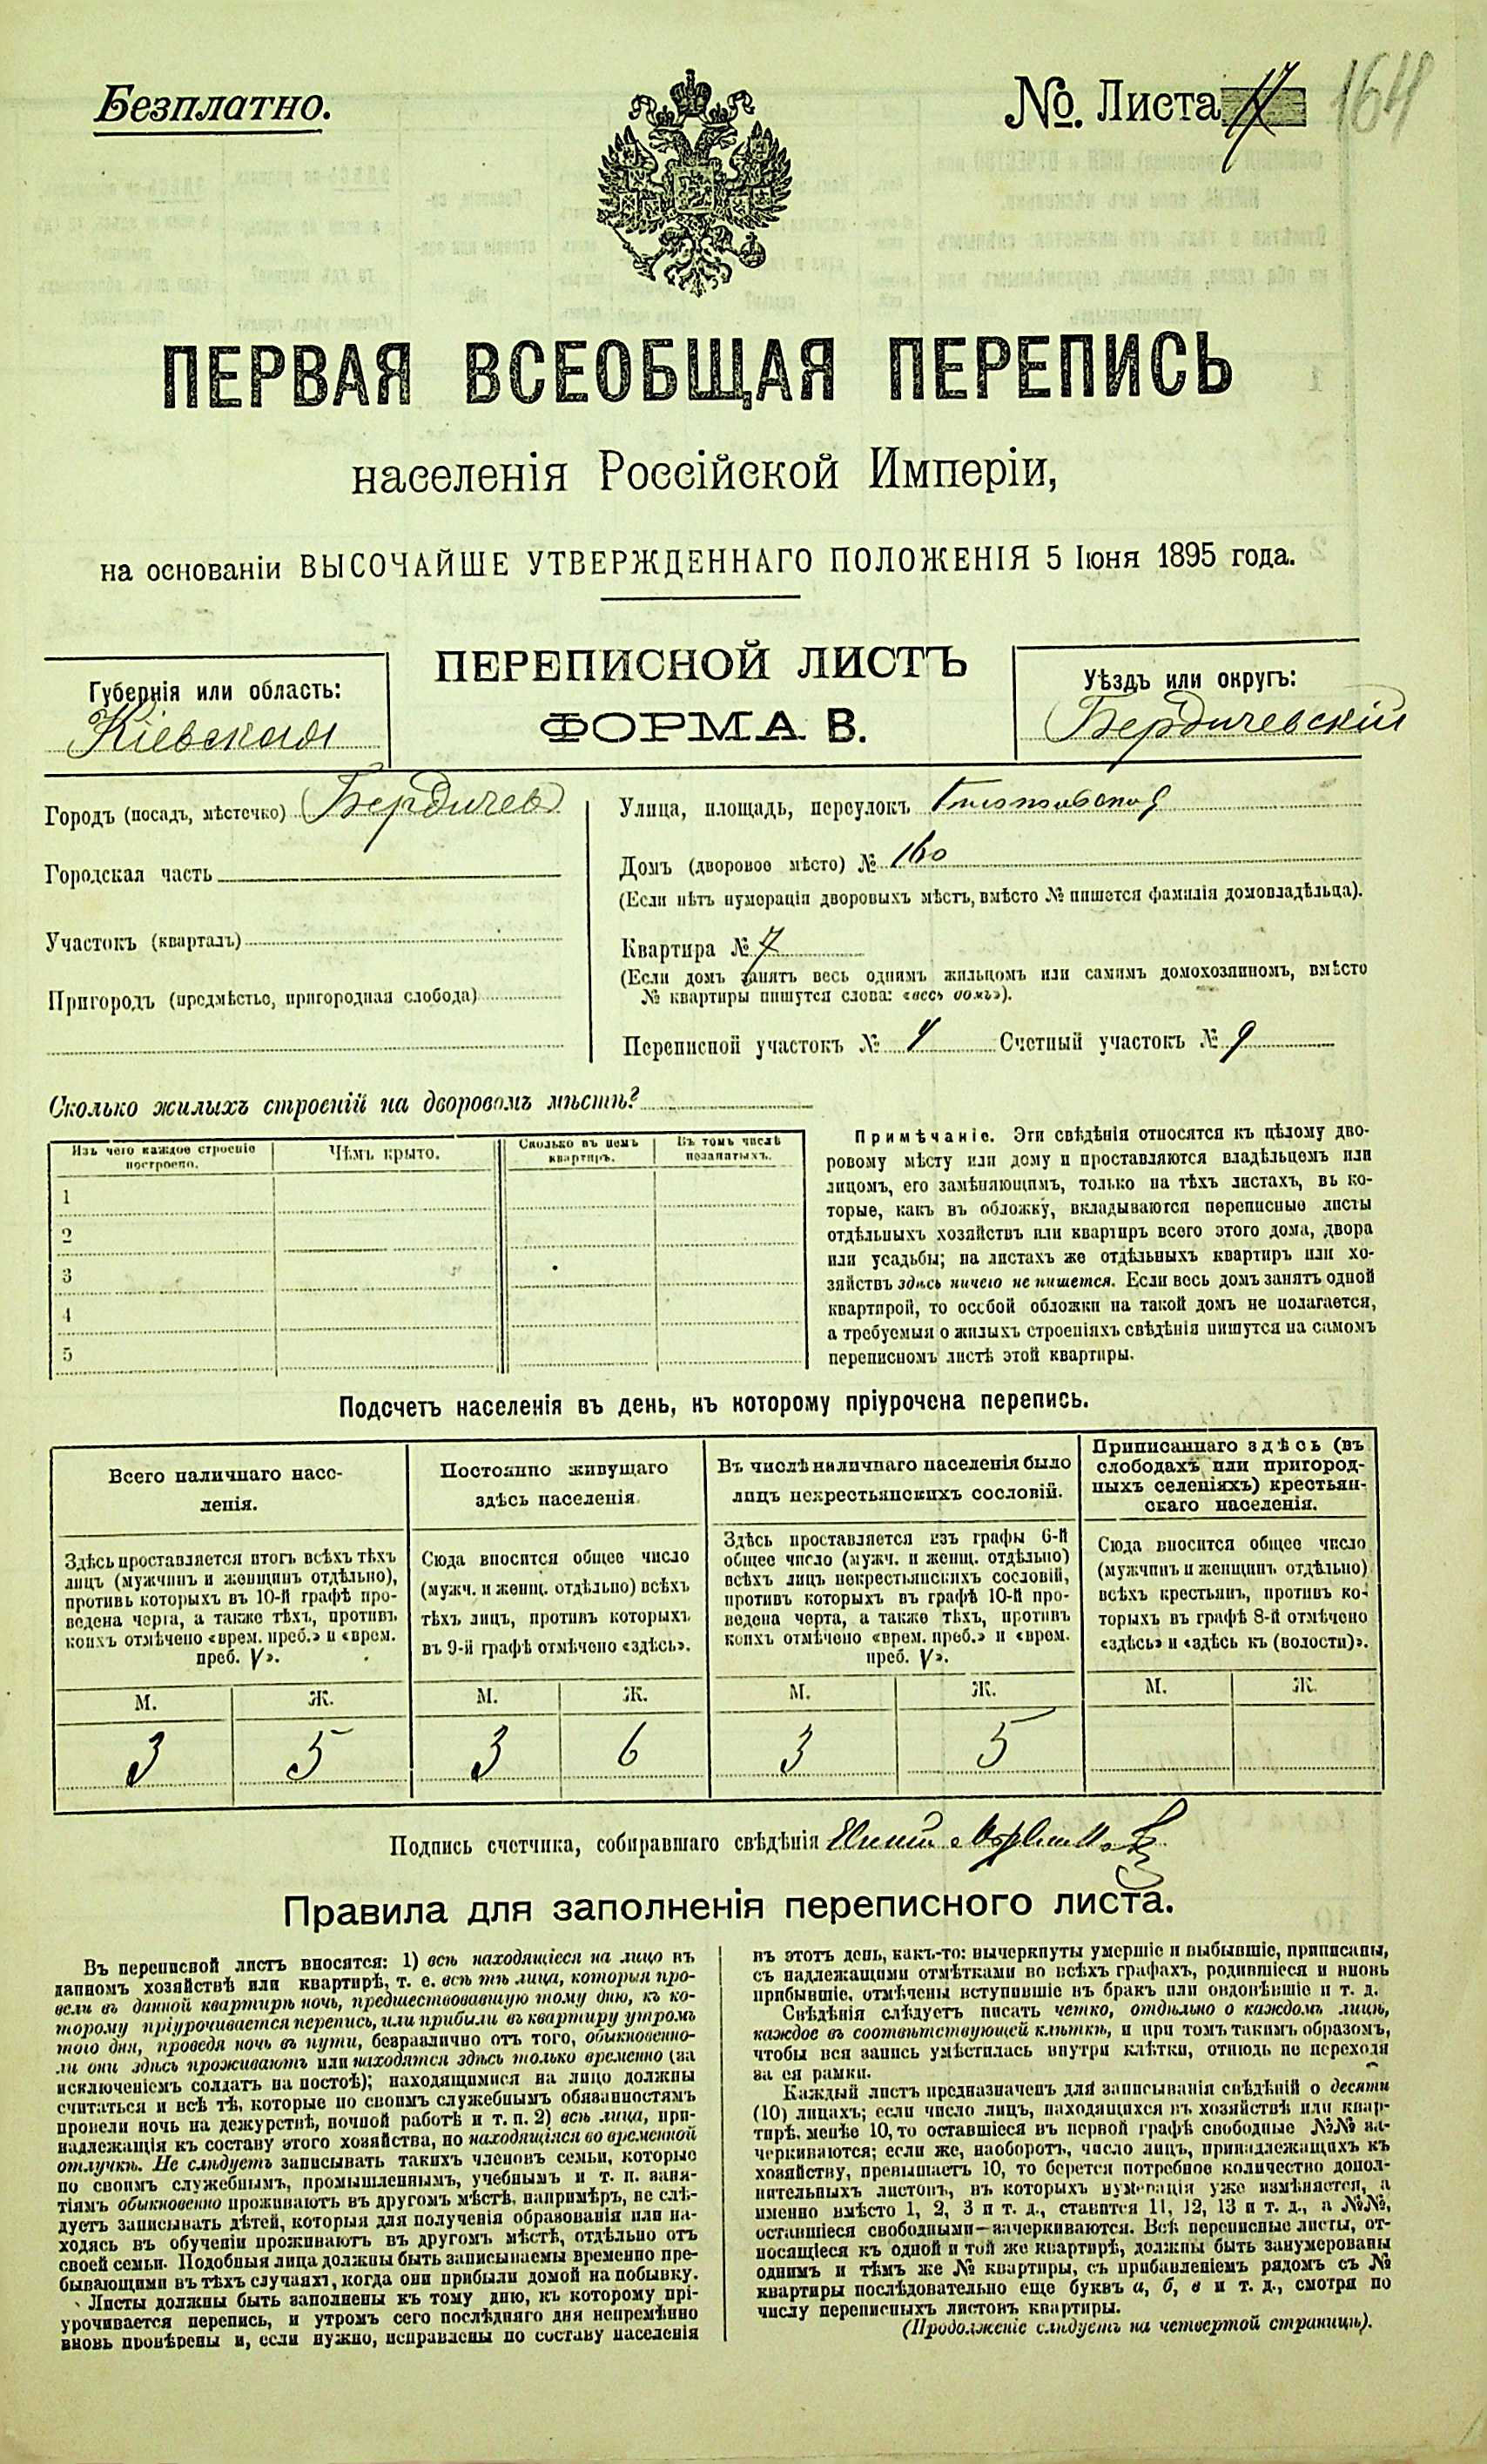 Безплатно.
№. Листа 164
ПЕРВАЯ ВСЕОБЩАЯ ПЕРЕПИСЬ
населенія Россійской Имперіи,
на основаніи ВЫСОЧАЙШЕ УТВЕРЖДЕННАГО ПОЛОЖЕНІЯ 5 Іюня 1895 года.
ПЕРЕПИСНОЙ ЛИСТЪ
ФОРМА В.
Губернія или область:
Кіевская
Уѣздъ или округъ:
Бердичевскій
Городъ (посадъ, мѣстечко) Бердичев
Городская часть
Участокъ (кварталъ)
Пригородъ (предмѣстье, пригородная слобода)
Улица, площадь, переулокъ
Домъ (дворовое мѣсто) № 160
(Если нѣтъ нумераціи дворовыхъ мѣстъ, вмѣсто № пишется фамилія домовладѣльца).
Квартира № 7
(Если домъ занятъ весь однимъ жильцомъ или самимъ домохозяиномъ, вмѣсто
№ квартиры пишутся слова: «весь домъ»).
Переписной участокъ № 4 Счетный участокъ № 9
Сколько жилыхъ строеній на дворовомъ мѣстѣ?
Изъ чего каждое строеніе построено.
Чѣмъ крыто.
Сколько въ немъ квартиръ.
Въ томъ числѣ незанятыхъ.
1
2
3
4
5
Примѣчаніе. Эти свѣдѣнія относятся къ цѣлому дво-
ровому мѣсту или дому и проставляются владѣльцемъ или
лицомъ, его замѣняющимъ, только на тѣхъ листахъ, въ ко-
торые, какъ въ обложку, вкладываются переписные листы
отдѣльныхъ хозяйствъ или квартиръ всего этого дома, двора
или усадьбы; на листахъ же отдѣльныхъ квартиръ или хо-
зяйствъ здѣсь ничего не пишется. Если весь домъ занятъ одной
квартирой, то особой обложки на такой домъ не полагается,
а требуемыя о жилыхъ строеніяхъ свѣдѣнія пишутся на самомъ
переписномъ листѣ этой квартиры.
Подсчетъ населенія въ день, къ которому пріурочена перепись.
Всего наличнаго насе-
ленія.
Здѣсь проставляется итогъ всѣхъ тѣхъ
лицъ (мужчинъ и женщинъ отдѣльно),
противъ которыхъ въ 10-й графѣ про-
ведена черта, а также тѣхъ, противъ
коихъ отмѣчено «врем. преб.» и «врем.
преб. V».
М. Ж.
3 5
Постоянно живущаго
здѣсь населенія.
Сюда вносится общее число
(мужч. и женщ. отдѣльно) всѣхъ
тѣхъ лицъ, противъ которыхъ
въ 9-й графѣ отмѣчено «здѣсь».
М. Ж.
3 6
Въ числѣ наличнаго населенія было
лицъ некрестьянскихъ сословій.
Здѣсь проставляется изъ графы 6-й
общее число (мужч. и женщ. отдѣльно)
всѣхъ лицъ некрестьянскихъ сословій,
противъ которыхъ въ графѣ 10-й про-
ведена черта, а также тѣхъ, противъ
коихъ отмѣчено «врем. преб.» и «врем.
преб. V».
М. Ж.
3 5
Приписаннаго здѣсь (въ
слободахъ или пригород-
ныхъ селеніяхъ) крестьян-
скаго населенія.
Сюда вносится общее число
(мужчинъ и женщинъ отдѣльно)
всѣхъ крестьянъ, противъ ко-
торыхъ въ графѣ 8-й отмѣчено
«здѣсь» и «здѣсь къ (волости)».
М. Ж.
Подпись счетчика, собиравшаго свѣдѣнія
Правила для заполненія переписного листа.
Въ переписной листъ вносятся: 1) всѣ находящіеся на лицо въ
данномъ хозяйствѣ или квартирѣ, т. е. всѣ тѣ лица, которыя про-
вели въ данной квартирѣ ночь, предшествовавшую тому дню, къ ко-
торому пріурочивается перепись, или прибыли въ квартиру утромъ
того дня, проведя ночь въ пути, безразлично отъ того, обыкновенно-
ли они здѣсь проживаютъ или находятся здѣсь только временно (за
исключеніемъ солдатъ на постоѣ); находящимися на лицо должны
считаться и всѣ тѣ, которые по своимъ служебнымъ обязанностямъ
провели ночь на дежурствѣ, ночной работѣ и т. п. 2) всѣ лица, при-
надлежащія къ составу этого хозяйства, но находящіяся во временной
отлучкѣ. Не слѣдуетъ записывать такихъ членовъ семьи, которые
по своимъ служебнымъ, промышленнымъ, учебнымъ и т. п. заня-
тіямъ обыкновенно проживаютъ въ другомъ мѣстѣ, напримѣръ, не слѣ-
дуетъ записывать дѣтей, которыя для полученія образованія или на-
ходясь въ обученіи проживаютъ въ другомъ мѣстѣ, отдѣльно отъ
своей семьи. Подобныя лица должны быть записываемы временно пре-
бывающими въ тѣхъ случаяхъ, когда они прибыли домой на побывку.
Листы должны быть заполнены къ тому дню, къ которому прі-
урочивается перепись, и утромъ сего послѣдняго дня непремѣнно
вновь провѣрены и, если нужно, исправлены по составу населенія
въ этотъ день, какъ-то: вычеркнуты умершіе и выбывшіе, приписаны,
съ надлежащими отмѣтками во всѣхъ графахъ, родившіеся и вновь
прибывшіе, отмѣчены вступившіе въ бракъ или овдовѣвшіе и т. д.
Свѣдѣнія слѣдуетъ писать четко, отдѣльно о каждомъ лицѣ,
каждое въ соотвѣтствующей клѣткѣ, и при томъ такимъ образомъ,
чтобы вся запись умѣстилась внутри клѣтки, отнюдь не переходя
за ея рамки.
Каждый листъ предназначенъ для записыванія свѣдѣній о десяти
(10) лицахъ; если число лицъ, находящихся въ хозяйствѣ или квар-
тирѣ, менѣе 10, то оставшіеся въ первой графѣ свободные №№ за-
черкиваются; если же, наоборотъ, число лицъ, принадлежащихъ къ
хозяйству, превышаетъ 10, то берется потребное количество допол-
нительныхъ листовъ, въ которыхъ нумерація уже измѣняется, а
именно вмѣсто 1, 2, 3 и т. д., ставится 11, 12, 13 и т. д., а №№,
оставшіеся свободными—зачеркиваются. Всѣ переписные листы, от-
носящіеся къ одной и той же квартирѣ, должны быть занумерованы
однимъ и тѣмъ же № квартиры, съ прибавленіемъ рядомъ съ №
квартиры послѣдовательно еще буквъ а, б, в и т. д., смотря по
числу переписныхъ листовъ квартиры.
(Продолженіе слѣдуетъ на четвертой страницѣ).